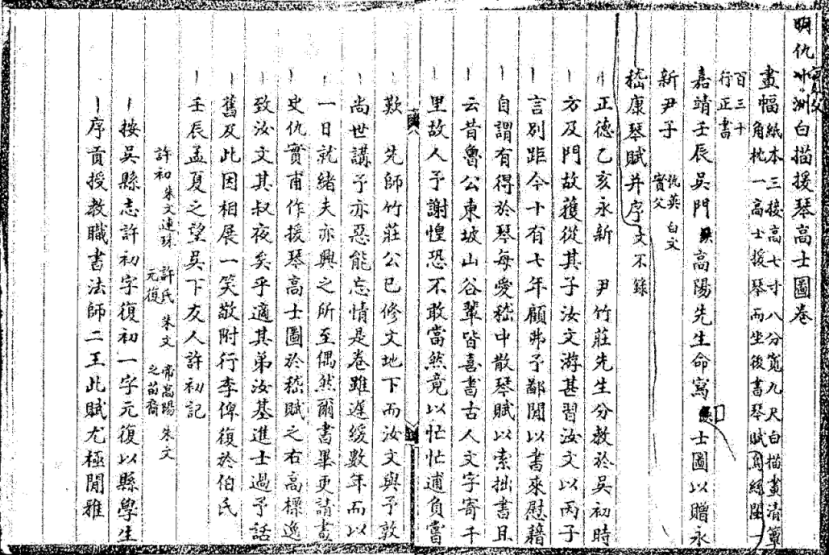 明仇十洲白描援琴高士圖卷
畫幅紙本三接高七寸八分寬九尺白描畫清簟
角枕一高士援琴而坐後書琴賦烏絲闌一
百三十
行正書
嘉靖壬辰吳門 高陽先生命寫 士圖以贈永
新尹子 仇英 白文
實父
嵇康琴賦并序 文不錄
正德乙亥永新 尹竹莊先生分教於吳初時
方及門故獲從其子汝文游甚習汝文以丙子
言別距今十有七年顧弗予鄙閒以書來慰藉
自謂有得於琴每愛嵇中散琴賦以索拙書且
云昔魯公東坡山谷輩皆喜書古人文字寄千
里故人予謝惶恐不敢當然竟以忙忙逋負嘗
歎 先師竹莊公已修文地下而汝文與予敦
尚世講予亦惡能忘情是卷雖遲緩數年而以
一日就緒夫亦興之所至偶然爾書畢更請畫
史仇實甫作援琴高士圖於嵇賦之右高標逸
致汝文其叔夜矣乎適其弟汝基進士過予話
舊及此因相展一笑敬附行李俾復於伯氏
壬辰孟夏之望吳下友人許初記
許初 朱文連珠 許氏 朱文 帝高陽 朱文
元復 之苗裔
按吳縣志許初字復初一字元復以縣學生
序貢授教職書法師二王此賦尤極閒雅